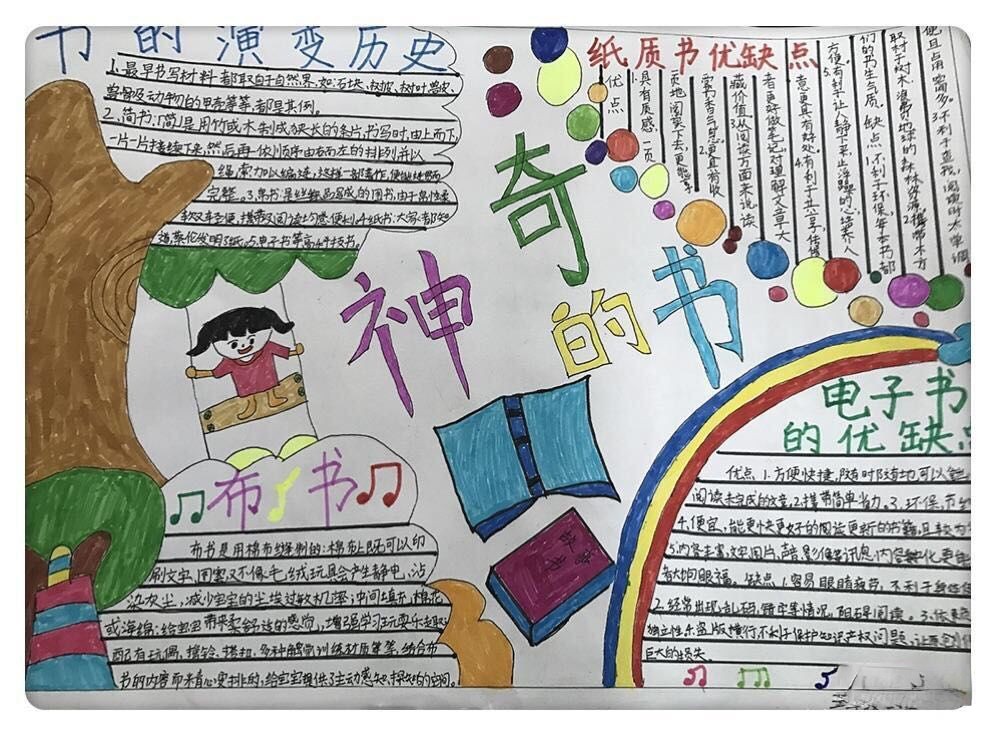 书的演变历史
1.最早书写材料都取自于自然界,如:石块、树皮、树叶、兽皮、
兽骨及动物的甲壳等等,都是其例。
2.简书:「简」是用竹或木制成狭长的条片,书写时,由上而下,
一片一片接续下来,然后再一依顺序由右而左的排列并以
绳索加以编连,这样一部著作,便能统归
完整。3.帛书:是丝织品写成的图书,由于帛性柔
软又轻便,携带及阅读均感便利。4.纸书:大家都知
道蔡伦发明了纸。5.电子书等高科技书。
纸质书优缺点
优点
1.具有质感,一页
一页地阅读下去,更能享
受书香气息,更具有收
藏价值。3.从阅读方面来说,读
者更好做笔记,对理解文章大
意更具有好处。4.有利于共分享,传借
方便。5.有利于让人静下来,止浮躁的心,培养人
们的书生气质。缺点:1.不利于环保,每本书都
取材于树木,浪费地球的森林资源。2.携带不方
便且占用
3.不利于查找,阅读时太单调
神奇的书
布书
布书是用棉布缝制的:棉布上既可以印
刷文字、图案,又不像毛、绒玩具会产生静电,沾
染灰尘,减少宝宝的尘埃过敏机率;中间填充棉花
或海绵:给宝宝带来柔软舒适的感觉,增强学习玩耍乐趣
配有玩偶、摇铃、搭扣、多种触觉训练材质等等,结合布
书的内容而来精心安排的,给宝宝提供了主动感知、探知的空间。
电子书
的优缺点
优点 1.方便快捷,随时随地可以
阅读未完成的文章,2.携带简单省力。3.环保,节约
4.便宜,能更快更好的阅读更新的书籍,且较为
5.内容丰富,文字图片,声音,影像等讯息,内容
者大饱眼福。缺点:1.容易眼睛疲劳,不利于身体
2.经常出现乱码,错字等情况,阻碍阅读。3.依
独立性未,盗版横行不利于保护知识产权问题,让
巨大的损失